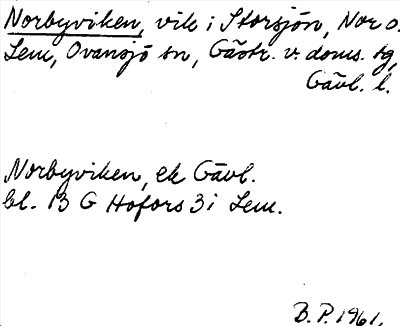 Norbyviken, vik i Storsjön, Nor o.
Lem, Ovansjö sn, Gästr. v. doms. tg,
Gävl. l.
Norbyviken, ek Gävl.
bl. 13 G Hofors 3 i Lem.
B.P. 1961.